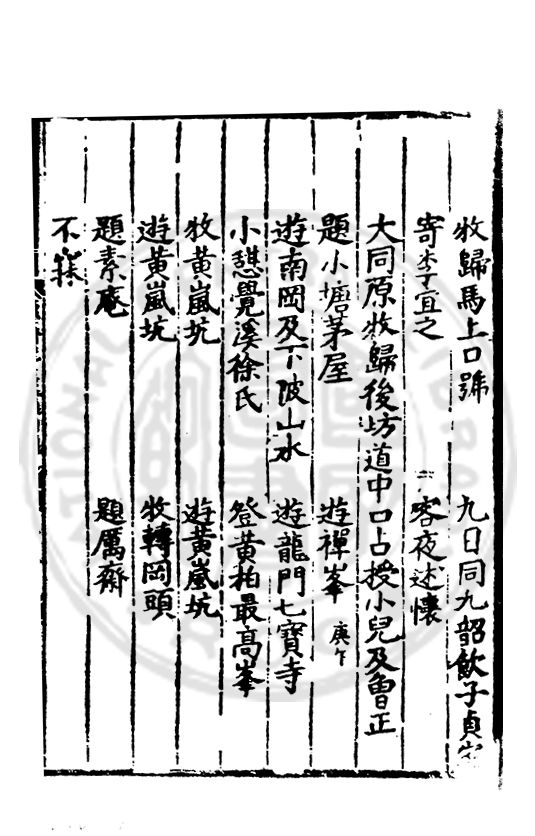 牧歸馬上口號 九日同九韶飲子貞家
寄李宜之 客夜述懷
大同原牧歸後坊道中口占授小兒及魯正
題小塘茅屋 遊禪峯 庚午
遊南岡及下陂山水 遊龍門七寶寺
小憩覺溪徐氏 登黃柏最高峯
牧黃嵐坑 遊黃嵐坑
遊黃嵐坑 牧轉岡頭
題素庵 題厲齋
不寐